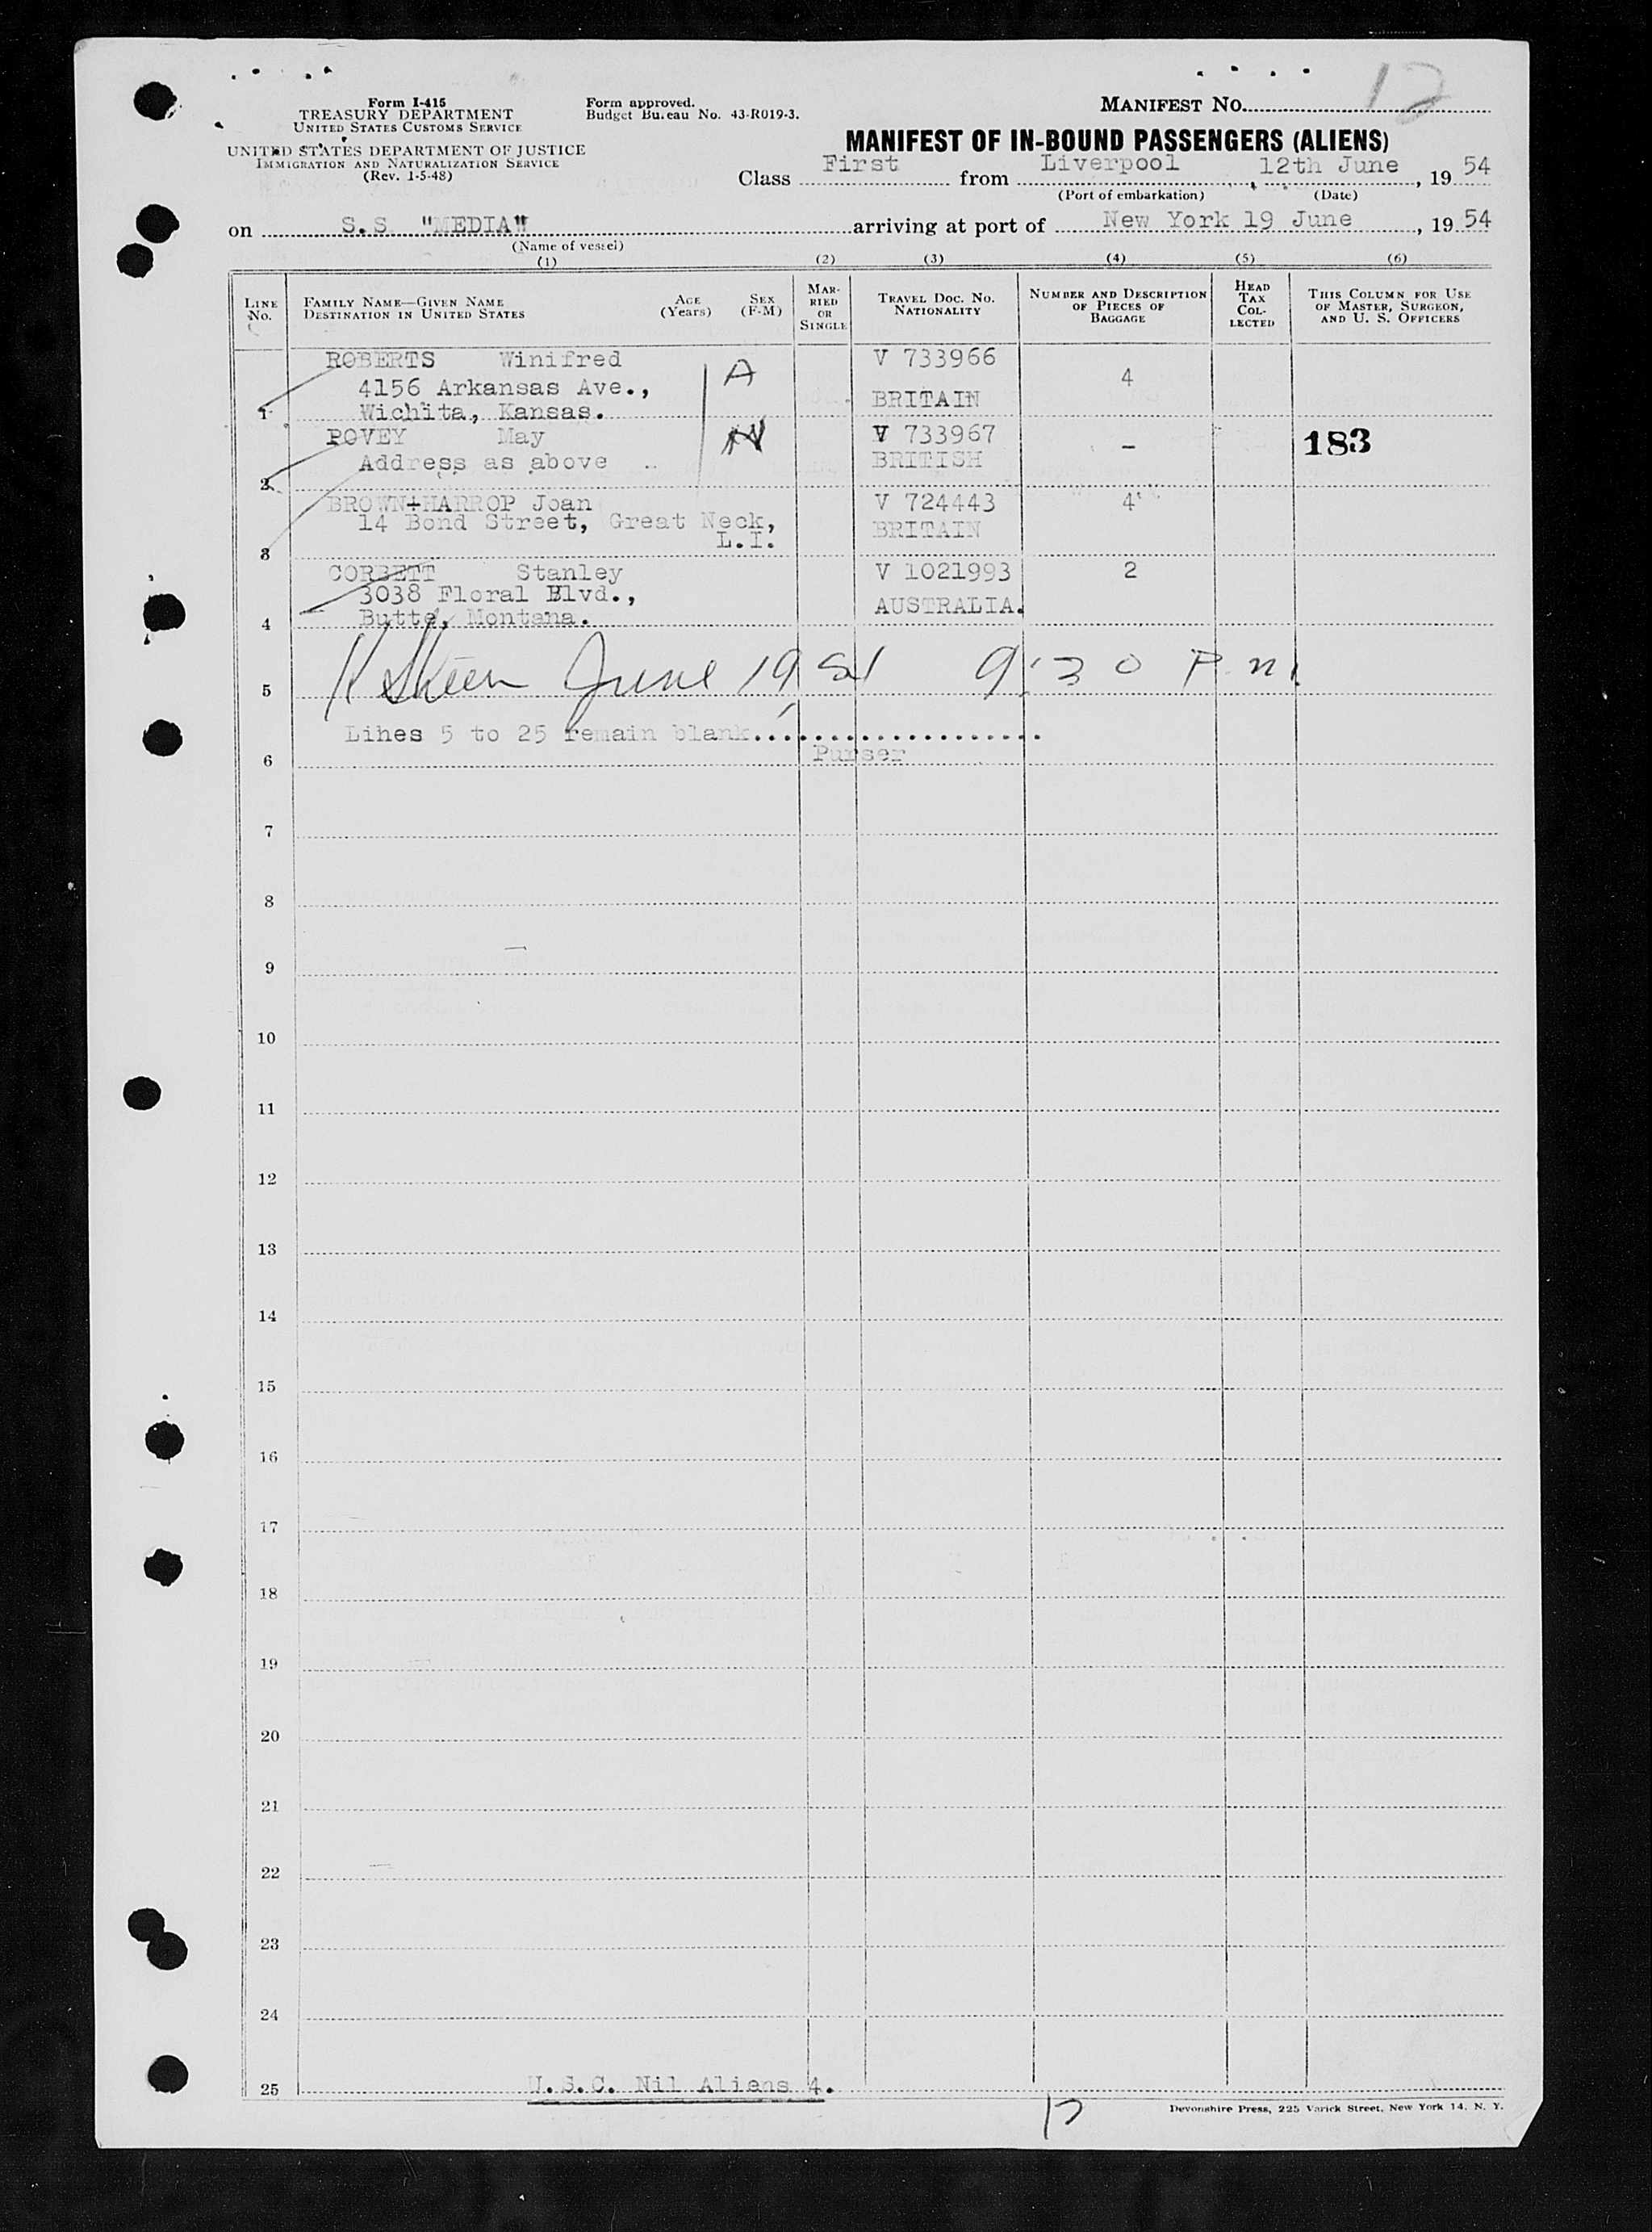 12
Form I-415
TREASURY DEPARTMENT
UNITED STATES CUSTOMS SERVICE
UNITED STATES DEPARTMENT OF JUSTICE
IMMIGRATION AND NATURALIZATION SERVICE
(Rev. 1-5-48)
Form approved.
Budget Bureau No. 43-R019-3.
MANIFEST No.
MANIFEST OF IN-BOUND PASSENGERS (ALIENS)
Class First from Liverpool, 12th June, 19 54
(Port of embarkation) (Date)
on S.S. "MEDIA" arriving at port of New York 19 June, 19 54
(Name of vessel)
(1) (2) (3) (4) (5) (6)
LINE No.
FAMILY NAME—GIVEN NAME
DESTINATION IN UNITED STATES
AGE (Years)
SEX (F-M)
MARRIED OR SINGLE
TRAVEL DOC. NO.
NATIONALITY
NUMBER AND DESCRIPTION OF PIECES OF BAGGAGE
HEAD TAX COLLECTED
THIS COLUMN FOR USE OF MASTER, SURGEON, AND U. S. OFFICERS
ROBERTS Winifred A V 733966
4156 Arkansas Ave., 4
1 Wichita, Kansas. BRITAIN
POVEY May V 733967 – 183
Address as above BRITISH
2
BROWN+HARROP Joan V 724443 4
14 Bond Street, Great Neck, BRITAIN
L.I.
3
CORBETT Stanley V 1021993 2
3038 Floral Blvd., AUSTRALIA.
4 Butte, Montana.
5 June 19, 9:30 P.m.
Lines 5 to 25 remain blank....................
6 Purser
7
8
9
10
11
12
13
14
15
16
17
18
19
20
21
22
23
24
25 U.S.C. Nil Aliens 4.
12
Devonshire Press, 225 Varick Street, New York 14, N. Y.